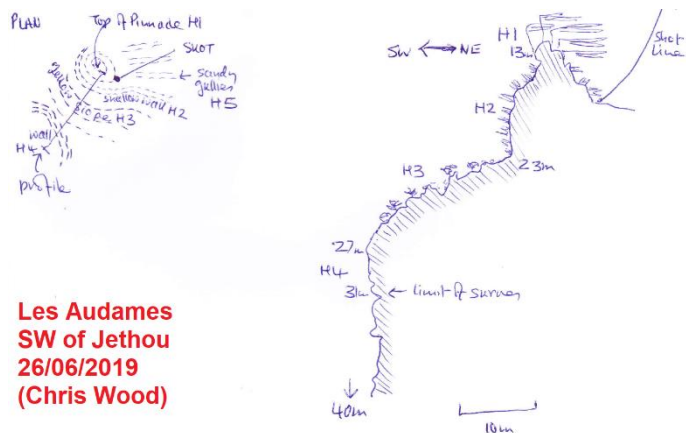 PLAN
Top of Pinnacle H1
SHOT
sandy
gullies
H5
yellow
shallow wall H2
slope H3
wall
H4
profile
SW ↔ NE
H1
13m
Shot
Line
H2
23m
H3
27m
H4
31m
← limit of survey
40m
10m
Les Audames
SW of Jethou
26/06/2019
(Chris Wood)